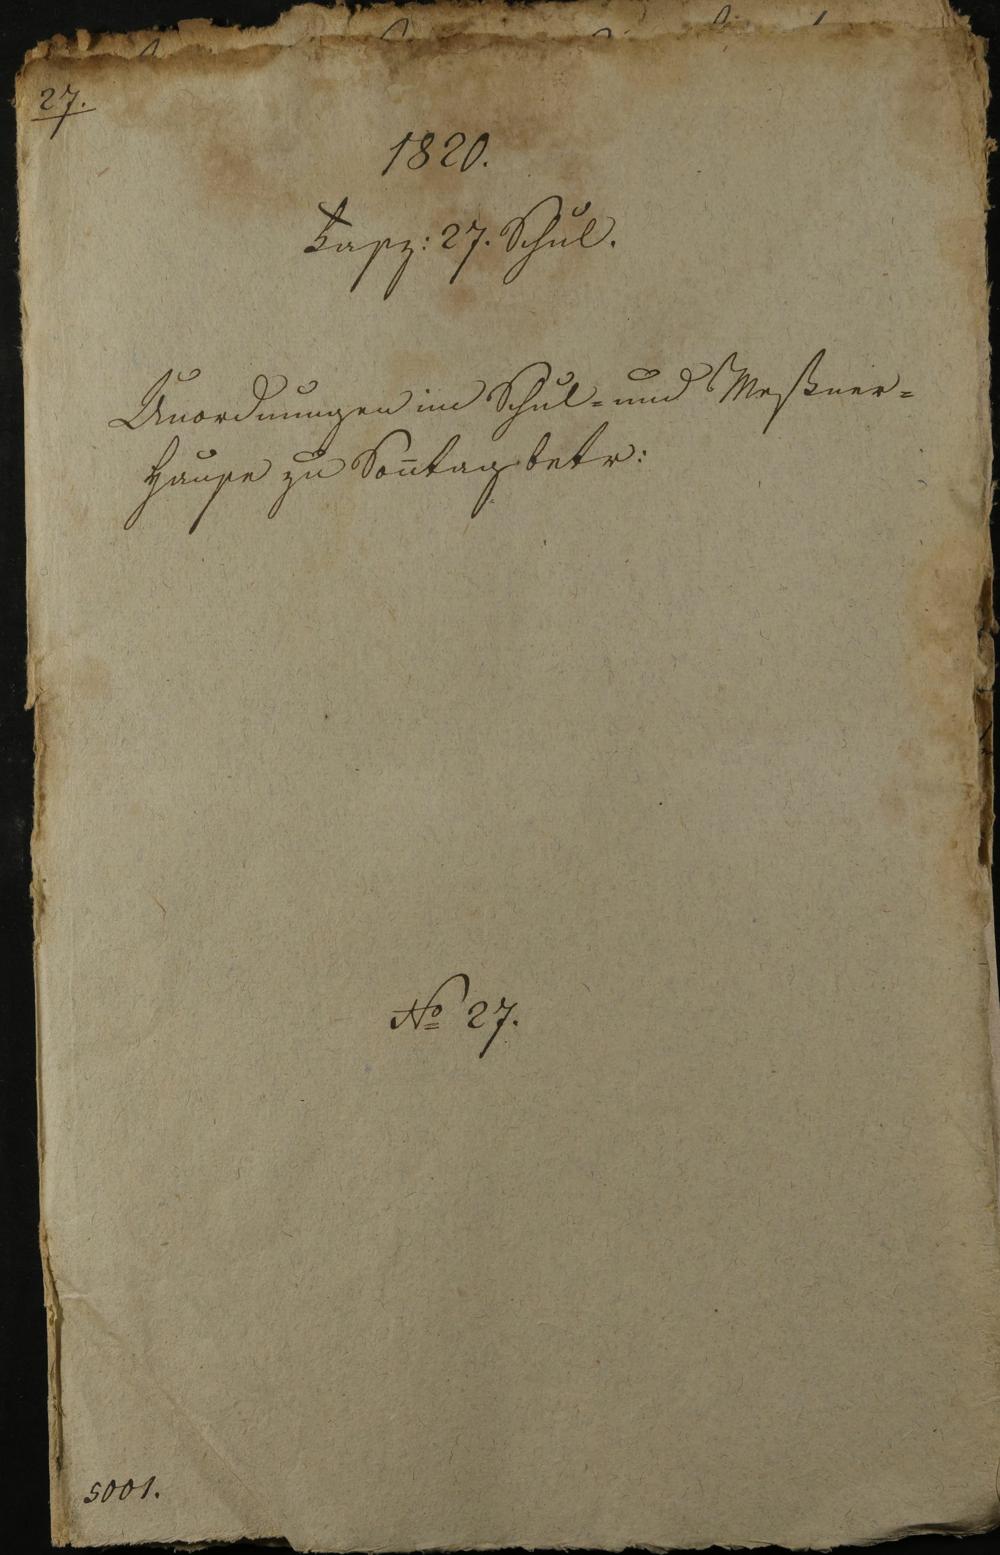 27.
1820.
Fasz: 27. Schul.
Unordnungen im Schul- und Meßner-
Hause zu Soñtag betr:
No 27.
5001.